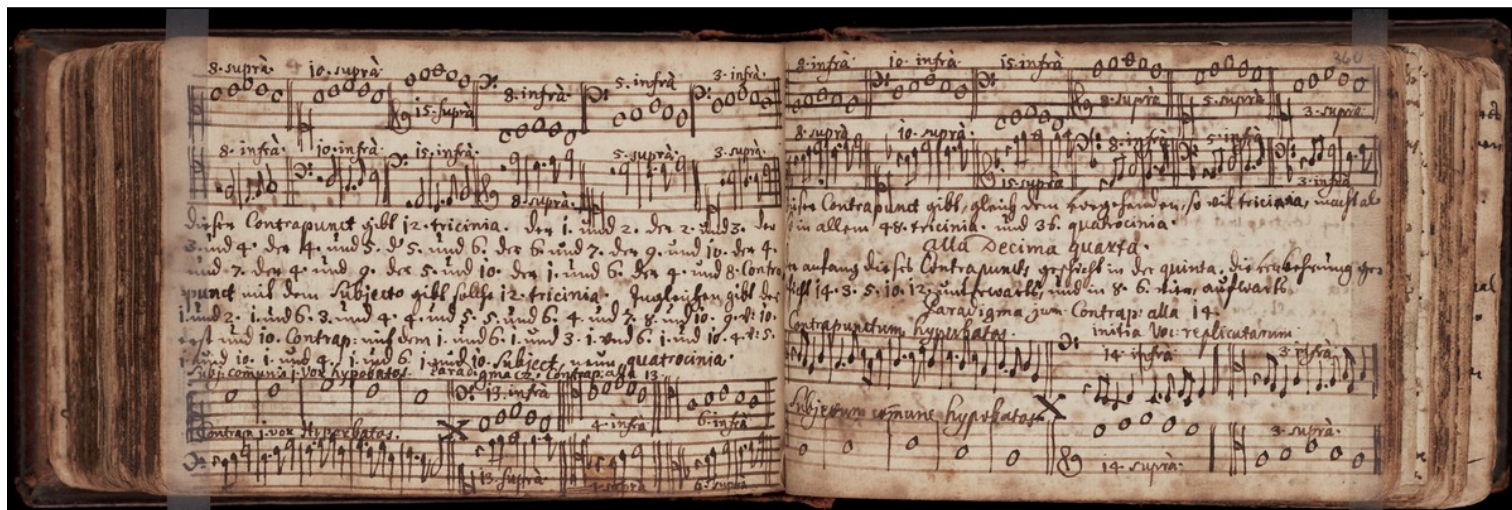 8. suprà. 10. suprà
15. suprà 8. infrà. 5. infrà 3. infrà.
8. infrà. 10. infrà. 15. infrà. 5. suprà. 3. suprà.
8. suprà.
dieser Contrapunct gibt 12. tricinia. der 1. und 2. der 2. und 3. der
3. und 4. der 4. und 5. d 5. und 6. der 6 und 7. der 9. und 10. der 4.
und 7. der 4. und 9. der 5. und 10. der 1. und 6. der 4. und 8. Contra
punct mit dem Subjecto gibt solche 12. tricinia. Ingleichen gibt der
1. und 2. 1. und 6. 3. und 4. 4. und 5. 5. und 6. 4. und 7. 8. und 10.
und 10. Contrap: mit dem 1. und 6. 1. und 3. 1. und 6. 1. und 10. 4. 5.
1. und 10. 1. und 4. 1. und 6. 1. und 10. Subject, neun quatrocinia.
Subj: comunis 1. vox hypobatos. Paradigma Contrap: alla 13.
13. infrà
4. infrà 6. infrà
Contrap: 1. vox Hyperbatos.
13. suprà 4. suprà 6. suprà
360
8. infrà. 10. infrà. 15. infrà.
8. suprà 5. suprà 3. suprà
8. suprà 10. suprà. 8. infrà 5. infrà
15. suprà 3. infrà
dieser Contrapunct gibt, gleich dem vorgehenden, so vil tricinia, macht al
in allem 48. tricinia. und 36. quatrocinia.
alla Decima quarta.
anfang dieses Contrapuncts geschicht in der quinta. die
14. 3. 5. 10. 12. unterwarts, und in 8. 6. aufwarts.
Paradigma zum Contrap: alla 14.
Contrapunctum hyperbatos. initia Voc: replicatarum
14. infrà 3. infrà
Subjectum comune hypobatos
14. suprà. 3. suprà.